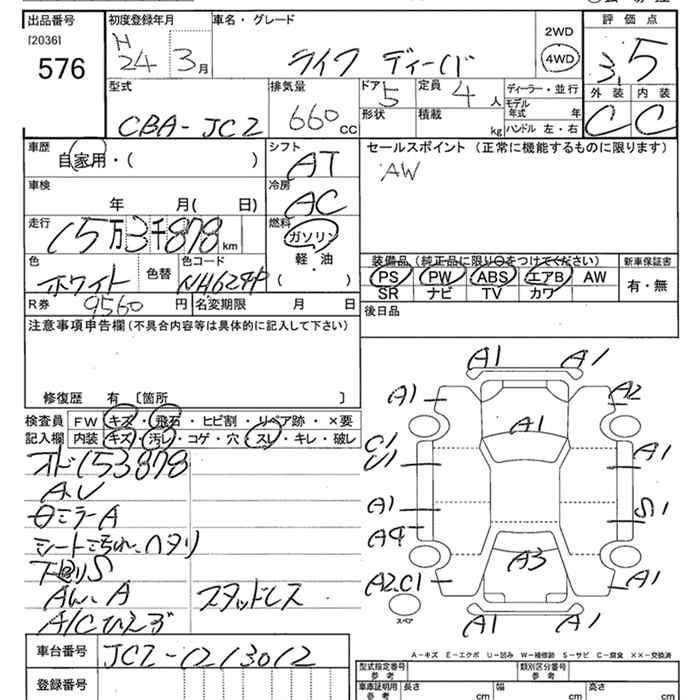 出品番号 初度登録年月 車名・グレード 評価点
[2036]
576
H24 3月 ライフ ディーバ 2WD 4WD 3.5
型式 排気量 ドア 5 定員 4人 ディーラー・並行 外装 内装
モデル年式 年
CBA-JC2 660cc 形状 積載 kg ハンドル 左・右 C C
車歴 シフト セールスポイント (正常に機能するものに限ります)
自家用・( ) AT AW
車検 冷房
年 月( 日) AC
走行 燃料
15万3千878km ガソリン
軽・油
色 色替 色コード ( ) 装備品 (純正品に限り○をつけてください) 新車保証書
ホワイト NH624P PS PW ABS エアB AW 有・無
SR ナビ TV カワ
R券 9560円 名変期限 月 日 後日品
注意事項申告欄(不具合内容等は具体的に記入して下さい)
修復歴 有 [箇所 ]
検査員 FW キズ・飛石・ヒビ割・リペア跡・×要
記入欄 内装 キズ・汚レ・コゲ・穴・スレ・キレ・破レ
オド153878
AU
ロミラーA
シート汚れ、ヘタリ
下回りS
AW.A スタッドレス
A/Cひえず
A1 A1
A1 A1 A2
C1 U1 A1
A1 S1
A4
A3
A2.C1 A1
スペア
A1 A1
A-キズ E-エクボ U-凹み W-補修跡 S-サビ C-腐食 ××-交換済
車台番号 JC2-1213012
登録番号
型式指定番号 参考 類別区分番号 参考
車庫証明用 参考 長さ cm 幅 cm 高さ cm